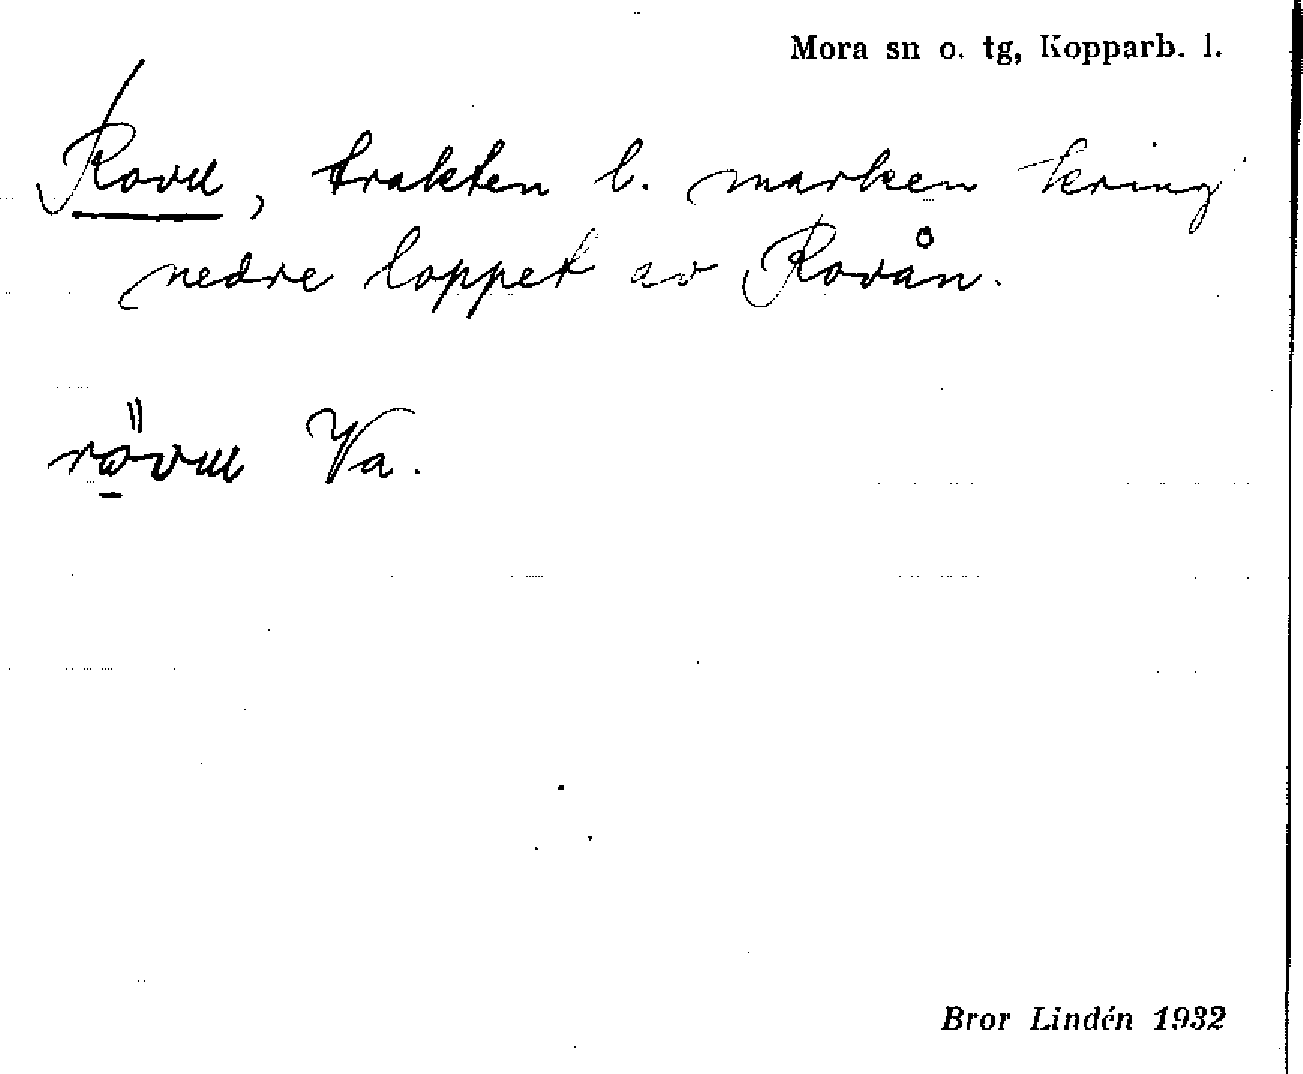 Mora sn o. tg, Kopparb. l.
Rovu, trakten l. marken kring
nedre loppet av Rovån.
Va.
Bror Lindén 1932